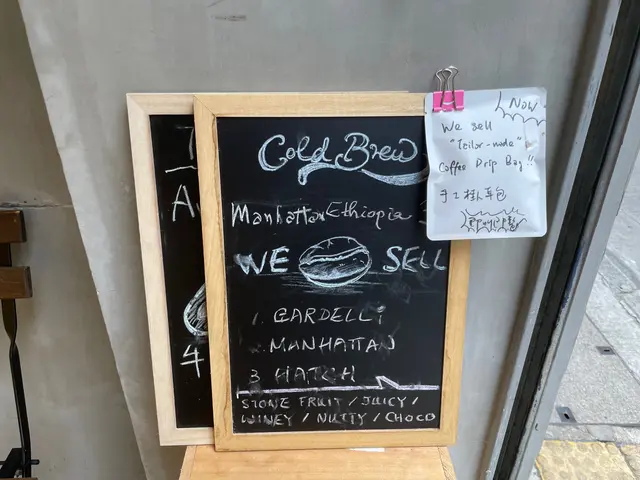 Cold Brew
Manhattan Ethiopia
WE SELL
1. GARDELLi
2. MANHATTAN
3 HATCH
STONE FRUIT / JUICY /
WINEY / NUTTY / CHOCO
Now
We sell
"Tailor-made"
Coffee Drip Bag!!
手工掛耳包
4